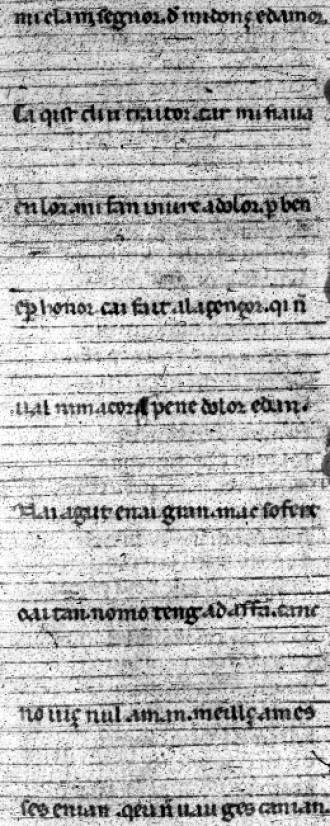 mi clam segnor. d midonç edamor.
Ca qist dui traitor. car mi fiaua
en lor. mi fan uiure adolor. p ben
ep honor cai fait alagençor. qi ñ
ual nim acor. pene dolor edan.
Nai agut enai gran. mas sofert
o ai tan. nomo teng ad affã. canc
no uiç nul aman. meillç ames
ses enian. qeu ñ uau ges camian.